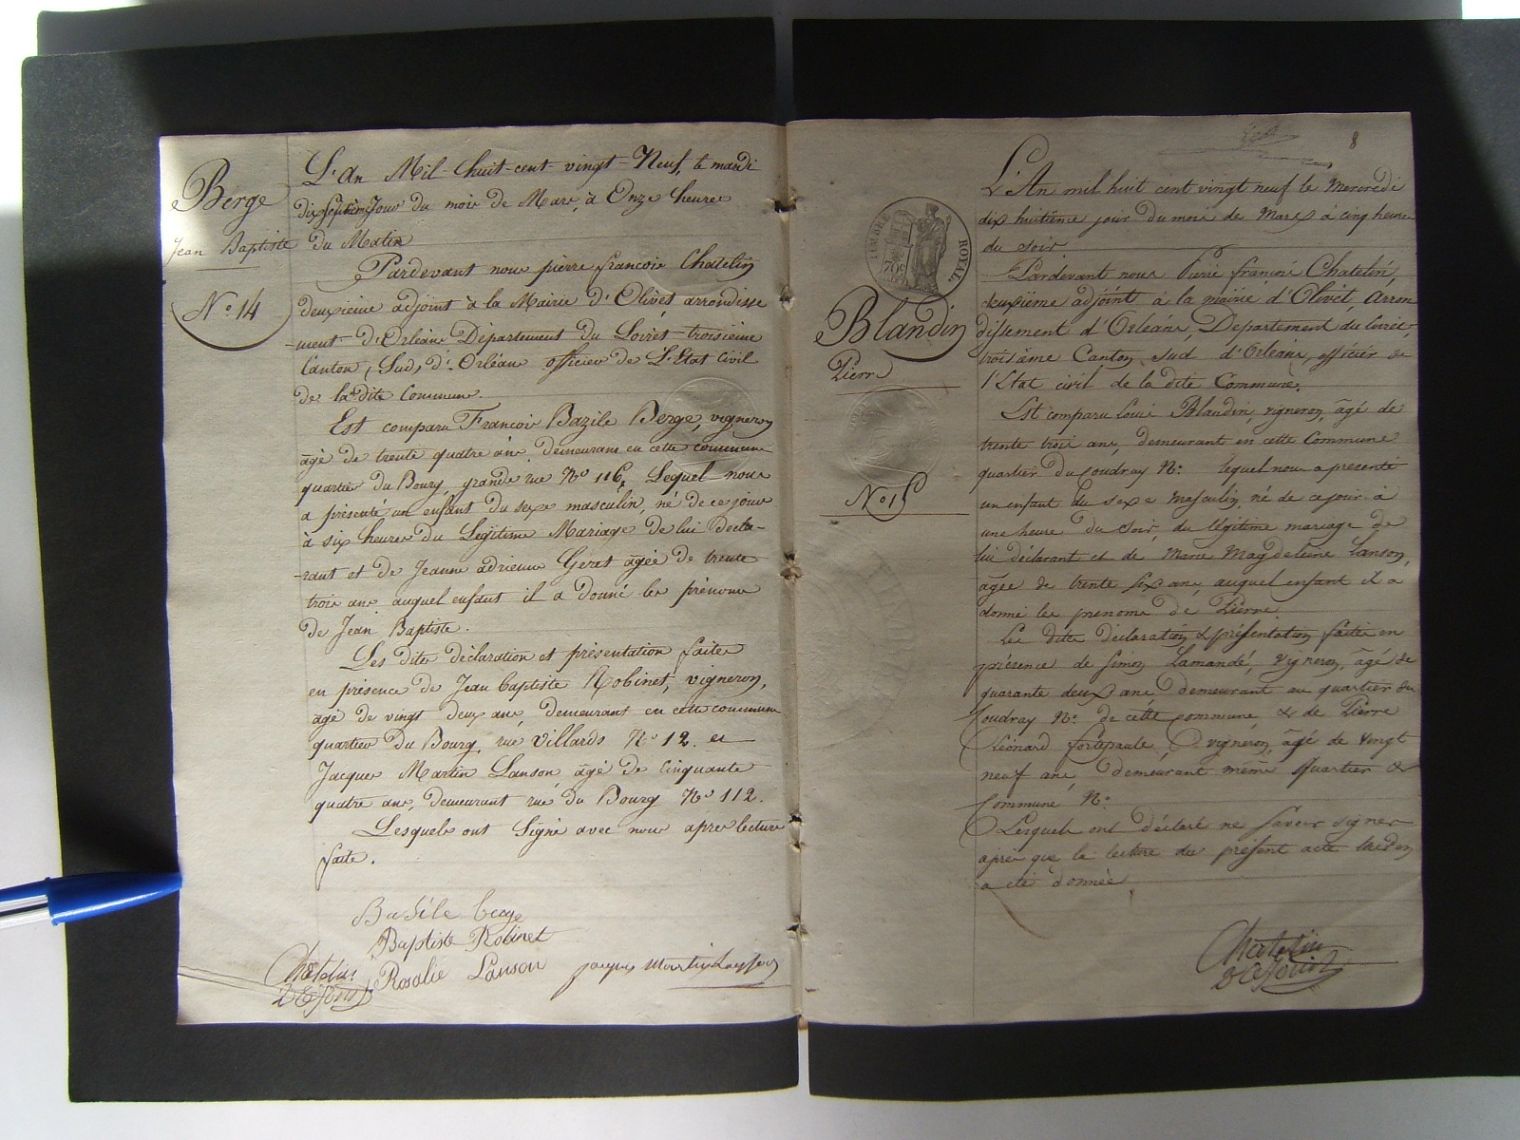 Berge
Jean Baptiste
N.º 14
L'An Mil-huit-cent-vingt-Neuf, le mardi
dix septième Jour du mois de Mars, à Onze heures
du Matin
Pardevant nous pierre françois Chatelin
deuxième adjoint à la Mairie d'Olivet arrondisse
-ment d'Orléans Département du Loiret-troisième
Canton, Sud, d'Orléans officier de L'Etat Civil
de la dite Commune.
Est comparu François Bazile Berge, vigneron
âgé de trente quatre ans, demeurans en cette commune
quartier du Bourg, grande rue Nº 116, Lequel nous
a présenté un enfant du sexe masculin, né de ce jour
à six heures du Légitime Mariage de lui décla-
-rant et de Jeanne adrienne Geret âgée de trente
trois ans auquel enfant il a donné les prénoms
de Jean Baptiste.
Les dites déclaration et présentation faites
en présence de Jean baptiste Robinet, vigneron,
âgé de vingt deux ans, demeurant en cette commune
quartier du Bourg, rue villards Nº 12. et
Jacques Martin Lanson âgé de Cinquante
quatre ans, demeurant rue du Bourg Nº 112.
Lesquels ont Signé avec nous apres lecture
faite.
Basile berge
Baptiste Robinet
Chatelin
Rosalie Lanson
jacques Martin Lanson
8
TIMBRE ROYAL
Blandin
Pierre
Nº 15
L'An mil huit cent vingt neuf le Mercredi
dix huitième jour du mois de Mars à cinq heures
du soir
Pardevant nous Pierre françois Chatelin,
deuxième adjoint à la mairie d'Olivet, Arron
dissement d'Orléans, Département du Loiret,
troisième Canton, sud d'Orléans, officier de
l'Etat civil de la dite Commune.
Est comparu Louis Blandin, vigneron, âgé de
trente trois ans, demeurant en cette Commune
quartier du Coudray Nº: lequel nous a présenté
un enfant du sexe masculin né de ce jour à
une heure du soir, du légitime mariage de
lui déclarant et de Marie Magdeleine Lanson,
âgée de trente six ans, auquel enfant il a
donné les prenoms de Pierre
Les dites déclaration & présentation faites en
présence de Simon Lamandé, vigneron, âgé de
quarante deux ans, demeurant au quartier du
Coudray Nº: de cette commune, & de Pierre
Léonard fortepaule, vigneron, âgé de vingt
neuf ans, demeurant même quartier &
Commune Nº:
Lesquels ont déclaré ne savoir signer
après que la lecture du présent acte
a été donnée
Chatelin